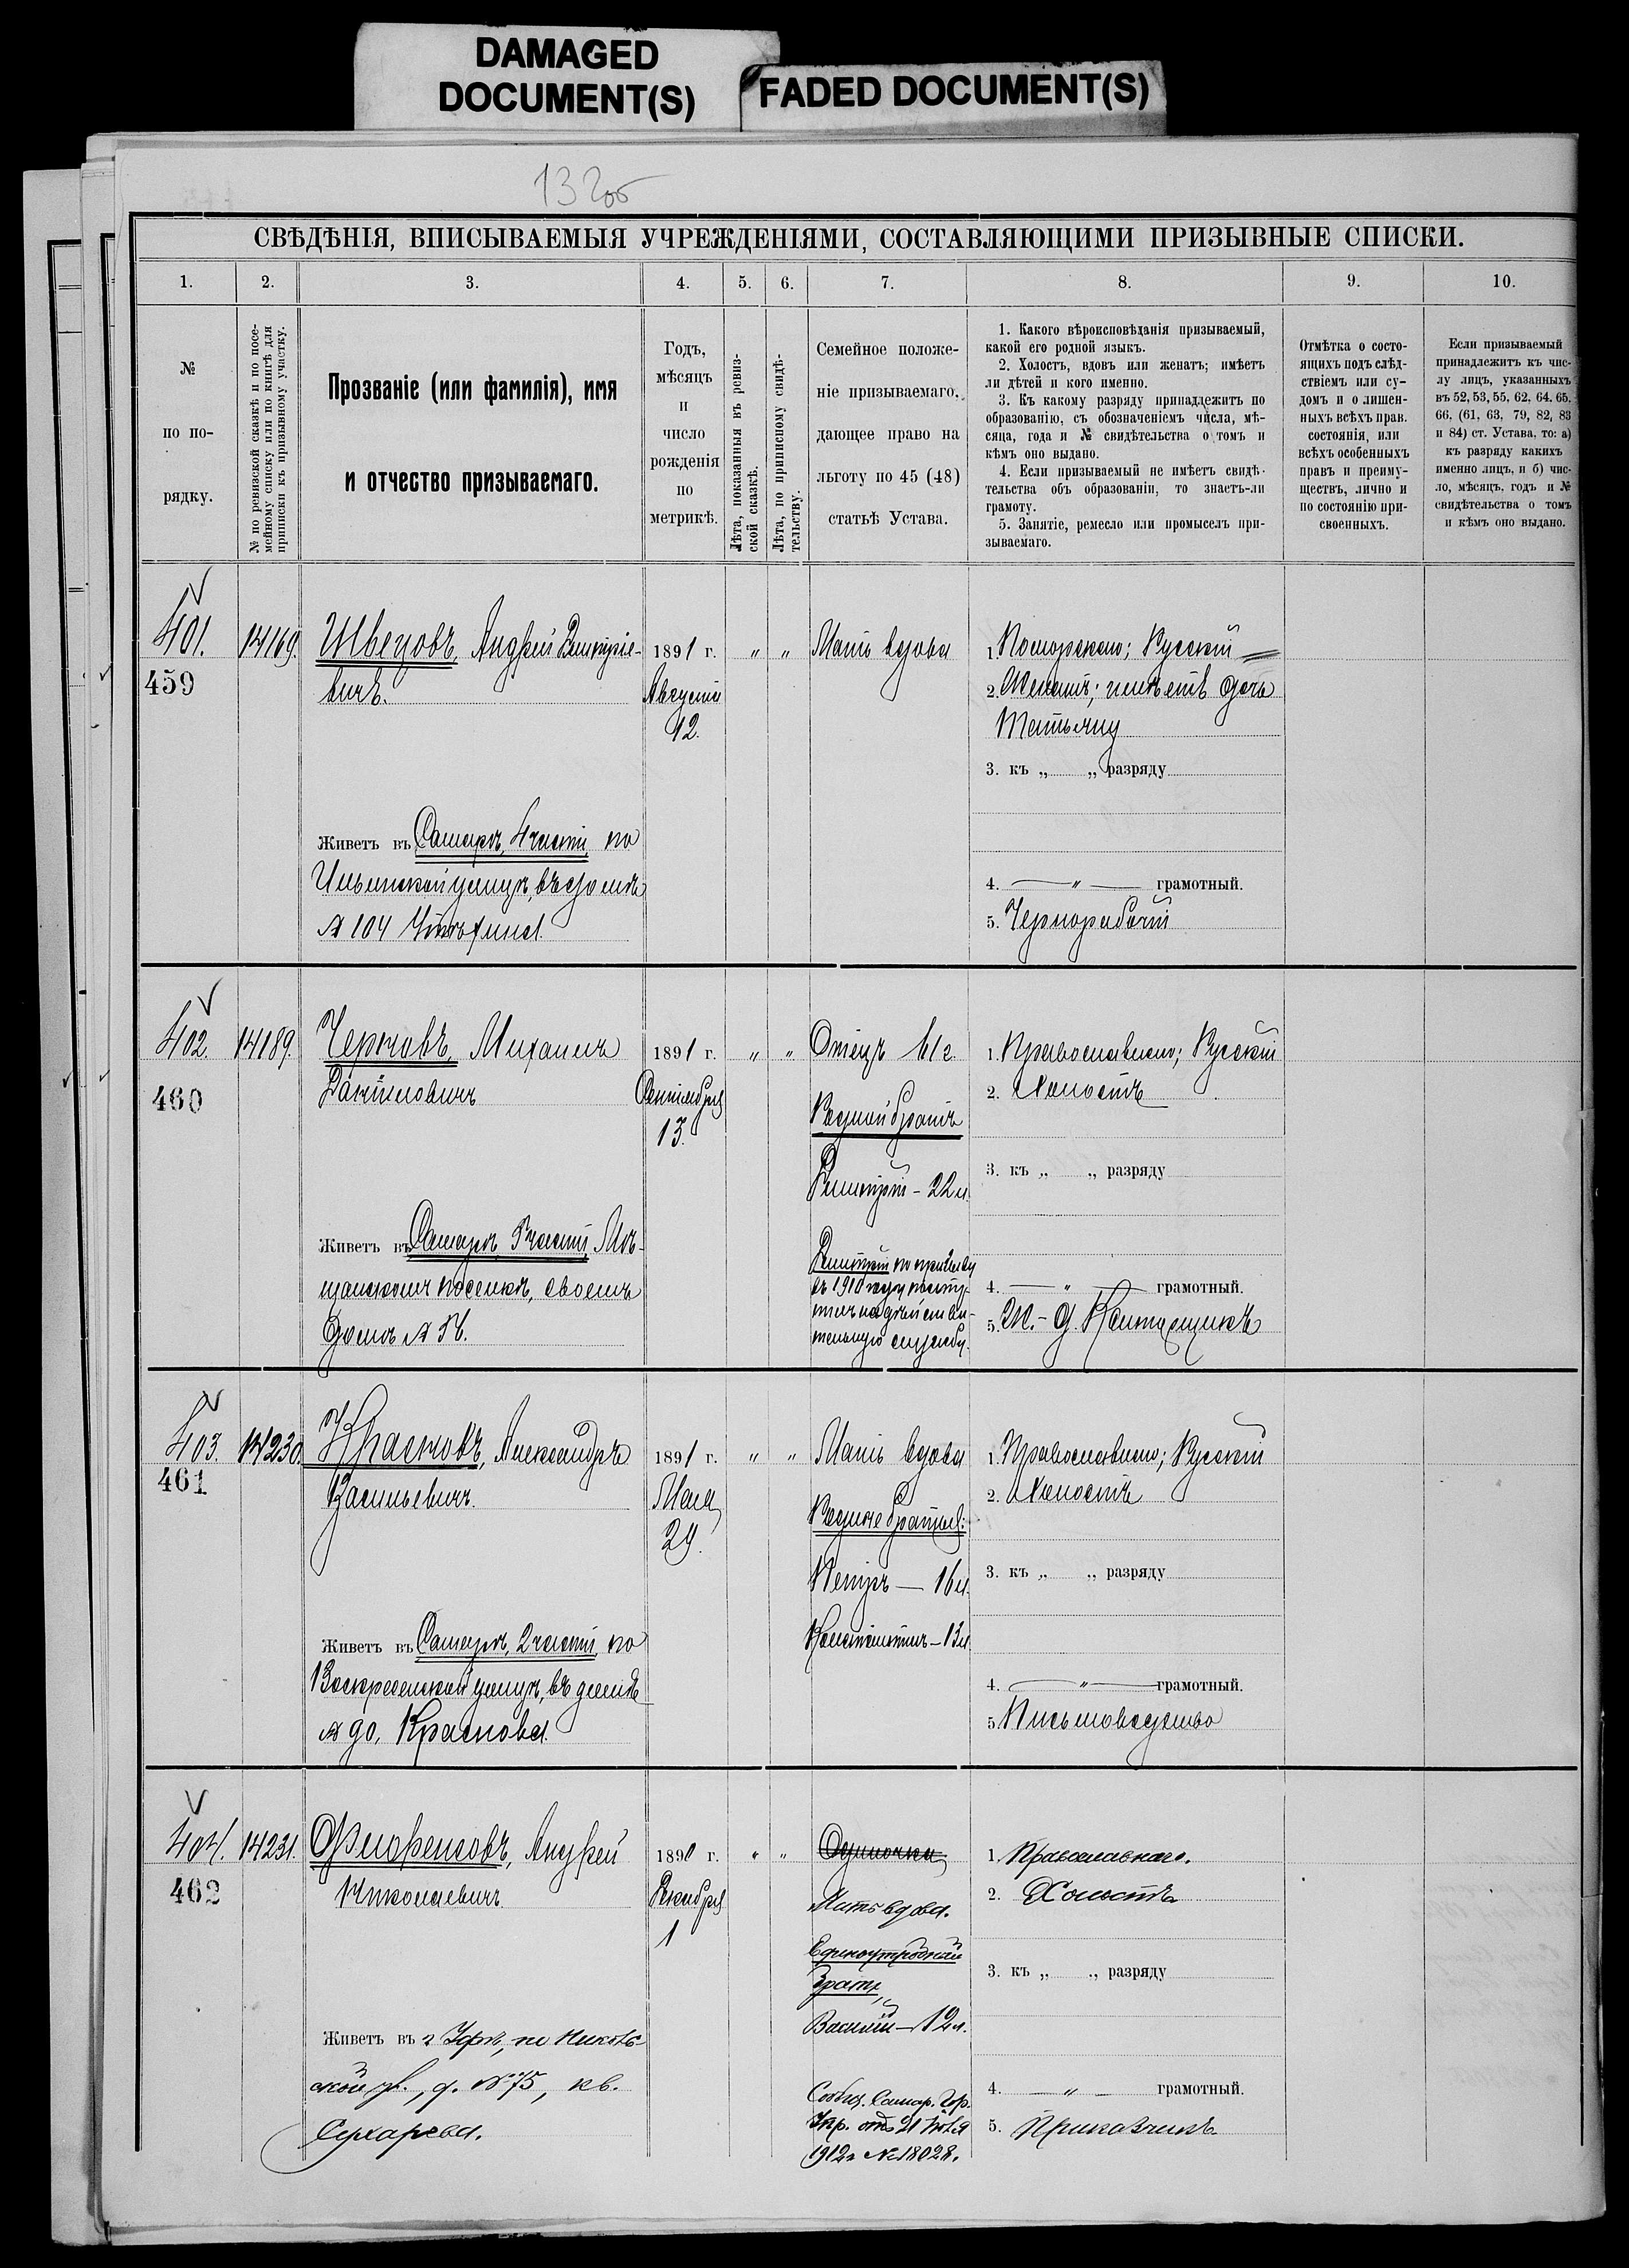 DAMAGED
DOCUMENT(S)
FADED DOCUMENT(S)
132об
СВѢДѢНІЯ, ВПИСЫВАЕМЫЯ УЧРЕЖДЕНІЯМИ, СОСТАВЛЯЮЩИМИ ПРИЗЫВНЫЕ СПИСКИ.
1. 2. 3. 4. 5. 6. 7. 8. 9. 10.
№
по по-
рядку.
№ по ревизской сказкѣ и по посе-
мейному списку или по книгѣ для
приписки къ призывному участку.
Прозваніе (или фамилія), имя
и отчество призываемаго.
Годъ,
мѣсяцъ
и
число
рожденія
по
метрикѣ.
Лѣта, показанныя въ ревиз-
ской сказкѣ.
Лѣта, по приписному свидѣ-
тельству.
Семейное положе-
ніе призываемаго,
дающее право на
льготу по 45 (48)
статьѣ Устава.
1. Какого вѣроисповѣданія призываемый,
какой его родной языкъ.
2. Холостъ, вдовъ или женатъ; имѣетъ
ли дѣтей и кого именно.
3. Къ какому разряду принадлежитъ по
образованію, съ обозначеніемъ числа, мѣ-
сяца, года и № свидѣтельства о томъ и
кѣмъ оно выдано.
4. Если призываемый не имѣетъ свидѣ-
тельства объ образованіи, то знаетъ-ли
грамоту.
5. Занятіе, ремесло или промыселъ при-
зываемаго.
Отмѣтка о состо-
ящихъ подъ слѣд-
ствіемъ или су-
домъ и о лишен-
ныхъ всѣхъ прав.
состоянія, или
всѣхъ особенныхъ
правъ и преиму-
ществъ, лично и
по состоянію при-
своенныхъ.
Если призываемый
принадлежитъ къ чис-
лу лицъ, указанныхъ
въ 52, 53, 55, 62, 64, 65,
66, (61, 63, 79, 82, 83
и 84) ст. Устава, то: а)
къ разряду какихъ
именно лицъ, и б) чис-
ло, мѣсяцъ, годъ и №
свидѣтельства о томъ
и кѣмъ оно выдано.
401.
459
14169.
Швецовъ, Андрей Димитріе-
вичъ.
Живетъ въ Самарѣ, 4 части, по
Ильинской улицѣ, въ домѣ
№ 104
1891 г.
Августа
12.
„ „
Мать вдова
1. Поморскаго; Русскій
2. Женатъ; имѣетъ дочь
Татьяну
3. къ „ „ разряду
4. — „ — грамотный.
5. Чернорабочій
402.
460
14189.
Чертовъ, Михаилъ
Даніиловичъ
Живетъ въ Самарѣ, 5 части, Мѣ-
щанскомъ поселкѣ, своемъ
домѣ № 56.
1891 г.
Сентября
13.
„ „
Отецъ 61 г.
Родной братъ
Димитрій - 22 л.
Димитрій по призыву
въ 1910 году посту-
пилъ на дѣйстви-
тельную службу.
1. Православнаго; Русскій
2. Холостъ
3. къ „ „ разряду
4. — „ — грамотный.
5. Ж.-д. Конторщикъ
403.
461
14230.
Красновъ, Александръ
Васильевичъ.
Живетъ въ Самарѣ, 2 части, по
Воскресенской улицѣ, въ домѣ
№ 90, Краснова.
1891 г.
Мая
29.
„ „
Мать вдова
Родные братья:
Петръ — 16 л.
Константинъ — 13 л.
1. Православнаго; Русскій
2. Холостъ
3. къ „ „ разряду
4. — „ — грамотный.
5. Письмоводство
404.
462
14231.
Флоренсовъ, Андрей
Николаевичъ
Живетъ въ г. Уфѣ, по Николь-
ской ул., д. № 75, кв.
Сухарева.
1890 г.
Декабря
1
„ „
Одиночка
Мать вдова.
Единоутробный
братъ,
Василій — 12 л.
Сообщ. Самар. Гор.
Упр. отъ 21
1912 г. № 18028.
1. Православнаго.
2. Холостъ
3. къ „ „ разряду
4. — „ — грамотный.
5. Приказчикъ